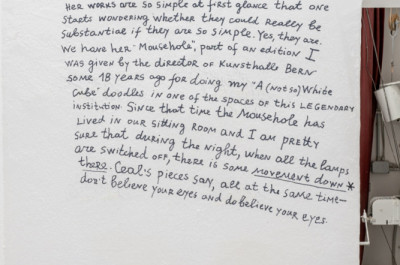 Her works are so simple at first glance that one
starts wondering whether they could really be
substantial if they are so simple. Yes, they are.
We have her "Mousehole", part of an edition I
was given by the director of Kunsthalle Bern
some 18 years ago for doing my "A (not so) White
Cube" doodles in one of the spaces of this LEGENDARY
institution. Since that time the Mousehole has
lived in our sitting room and I am pretty
sure that during the night, when all the lamps
are switched off, there is some movement down *
there. Ceal's pieces say, all at the same time –
don't believe your eyes and do believe your eyes.